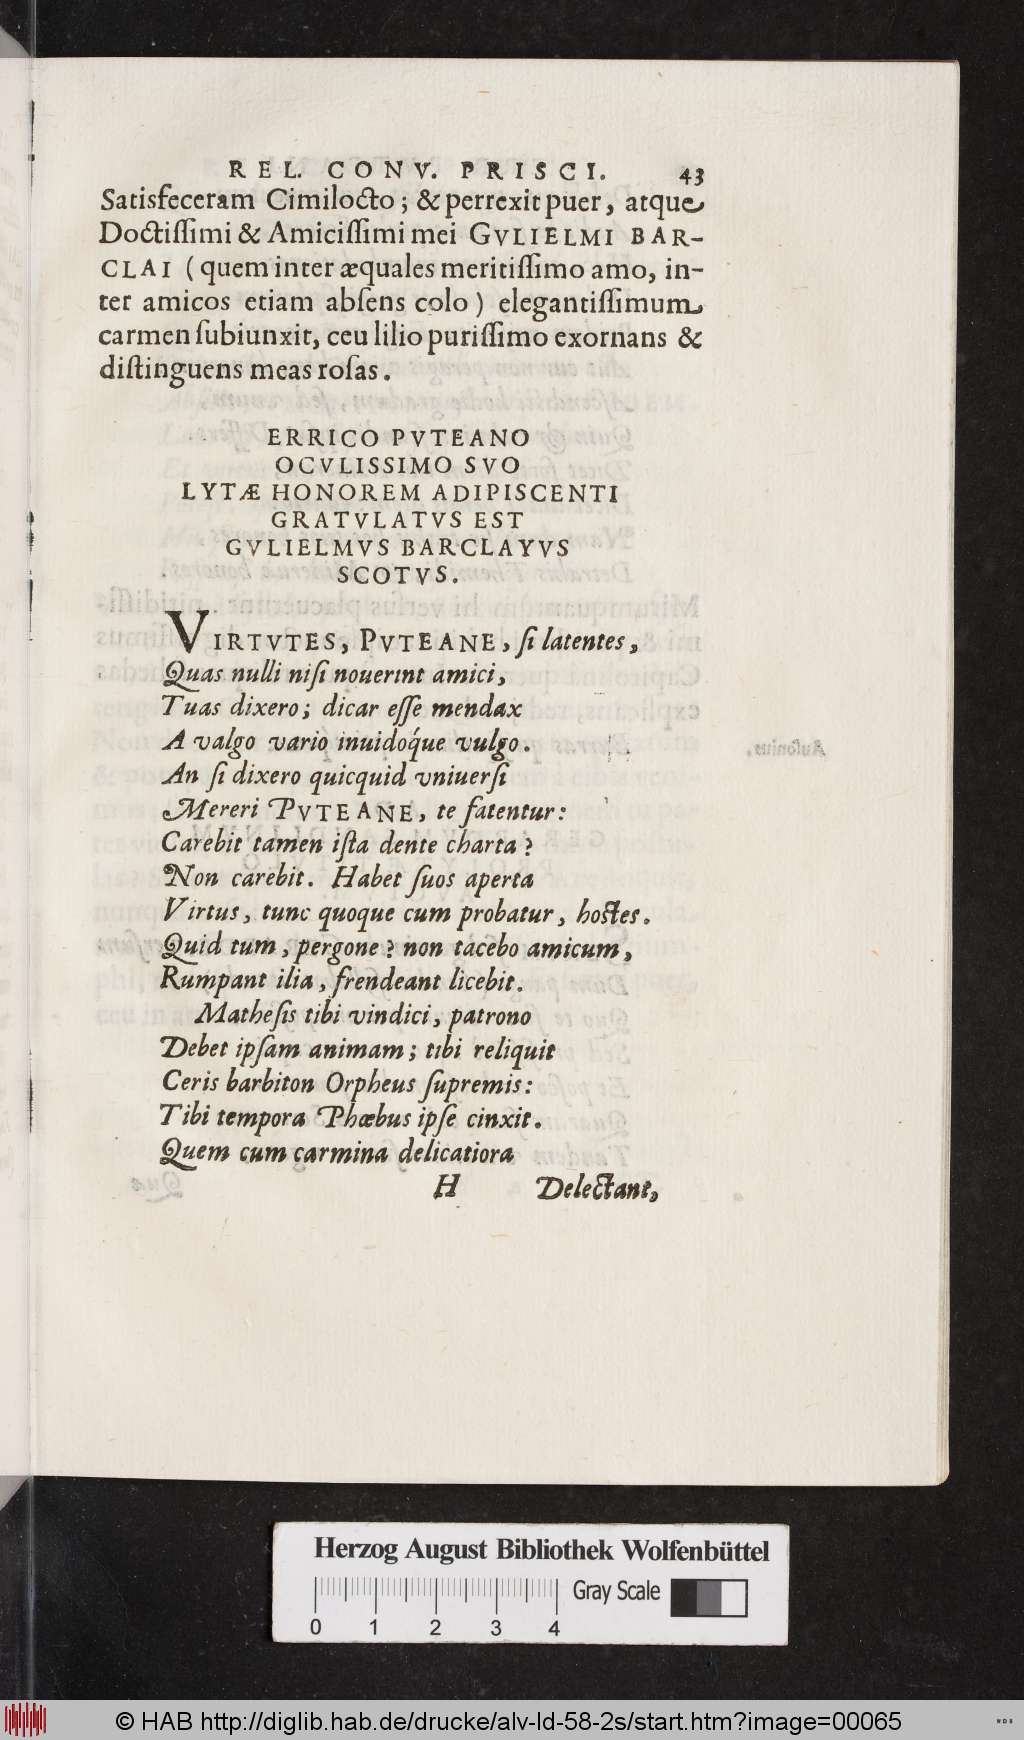 REL. CONV. PRISCI. 43
Satisfeceram Cimilocto; & perrexit puer, atque
Doctiſſimi & Amiciſſimi mei GVLIELMI BAR-
CLAI (quem inter æquales meritiſſimo amo, in-
ter amicos etiam abſens colo) elegantiſſimum
carmen ſubiunxit, ceu lilio puriſſimo exornans &
diſtinguens meas roſas.
ERRICO PVTEANO
OCVLISSIMO SVO
LYTÆ HONOREM ADIPISCENTI
GRATVLATVS EST
GVLIELMVS BARCLAYVS
SCOTVS.
VIRTVTES, PVTEANE, ſi latentes,
Quas nulli niſi nouerint amici,
Tuas dixero; dicar eſſe mendax
A valgo vario inuidoq́ue vulgo.
An ſi dixero quicquid vniuerſi
Mereri PVTEANE, te fatentur:
Carebit tamen iſta dente charta?
Non carebit. Habet ſuos aperta
Virtus, tunc quoque cum probatur, hoſtes.
Quid tum, pergone? non tacebo amicum,
Rumpant ilia, frendeant licebit.
Matheſis tibi vindici, patrono
Debet ipſam animam; tibi reliquit
Ceris barbiton Orpheus ſupremis:
Tibi tempora Phœbus ipſe cinxit.
Quem cum carmina delicatiora
H Delectant,
Herzog August Bibliothek Wolfenbüttel
Gray Scale
0 1 2 3 4
© HAB http://diglib.hab.de/drucke/alv-ld-58-2s/start.htm?image=00065